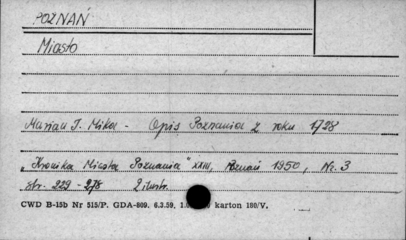 POZNAŃ
Miasto
Marian J. Mika - Opis Poznania z roku 1728
"Kronika Miasta Poznania" XXIII, Poznań 1950, Nr. 3
str. 229 - 278 2 ilustr.
CWD B-15b Nr 515/P. GDA-809. 6.3.59. karton 180/V.